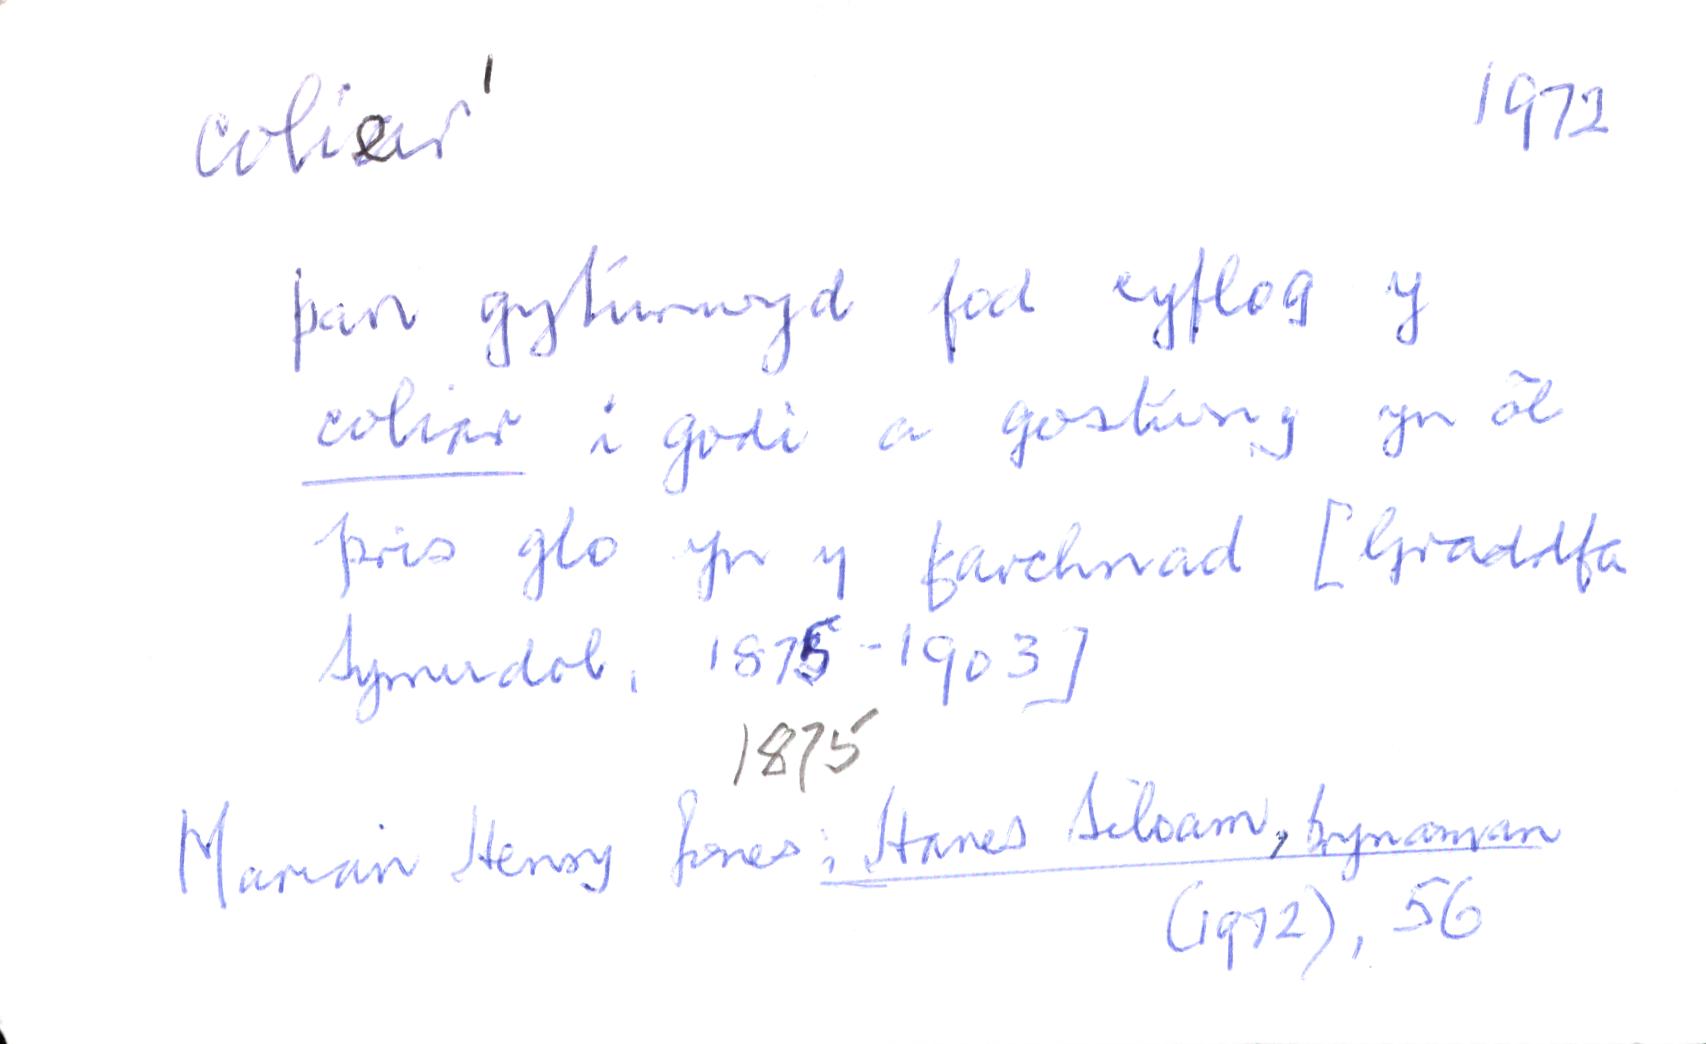 colier¹ 1972
pan gytunwyd fod cyflog y
colier i godi a gostwng yn ôl
pris glo yn y farchnad [Graddfa
Symudol, 1875-1903]
1875
Marian Henry Jones: Hanes Siloam, Brynaman
(1972), 56